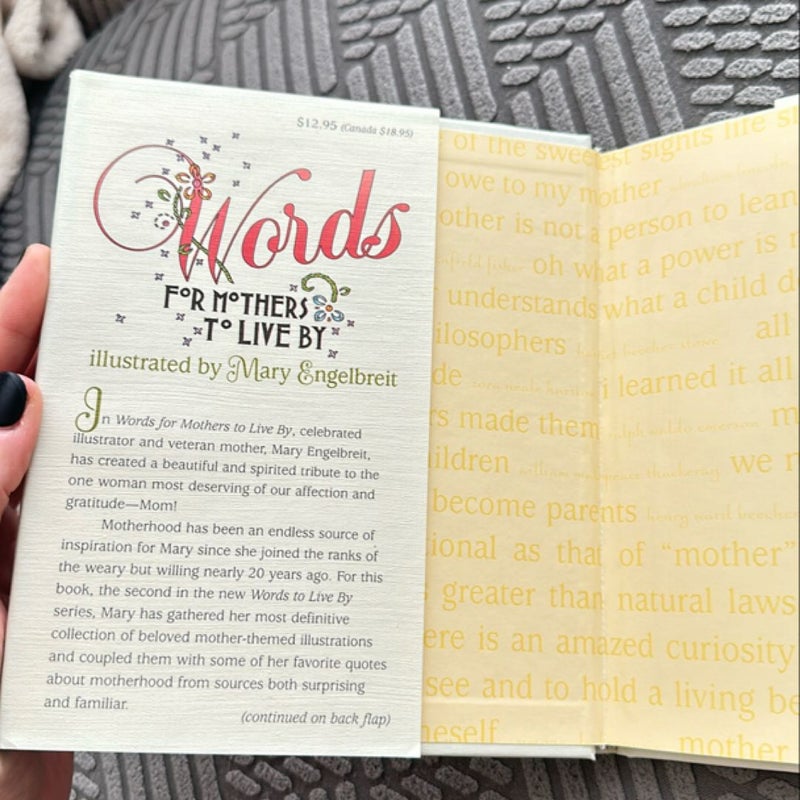 $12.95 (Canada $18.95)
Words
FOR MOTHERS
TO LIVE BY
illustrated by Mary Engelbreit
In Words for Mothers to Live By, celebrated
illustrator and veteran mother, Mary Engelbreit,
has created a beautiful and spirited tribute to the
one woman most deserving of our affection and
gratitude—Mom!
Motherhood has been an endless source of
inspiration for Mary since she joined the ranks of
the weary but willing nearly 20 years ago. For this
book, the second in the new Words to Live By
series, Mary has gathered her most definitive
collection of beloved mother-themed illustrations
and coupled them with some of her favorite quotes
about motherhood from sources both surprising
and familiar.
(continued on back flap)
of the sweetest sights life
owe to my mother
other is not a person to lean
oh what a power is
understands what a child
ilosophers harriet beecher stowe all
de zora neale hurston i learned it all
rs made them ralph waldo emerson m
ildren william makepeace thackeray we
become parents henry ward beecher
tional as that of "mother"
greater than natural laws
ere is an amazed curiosity
see and to hold a living be
neself mother